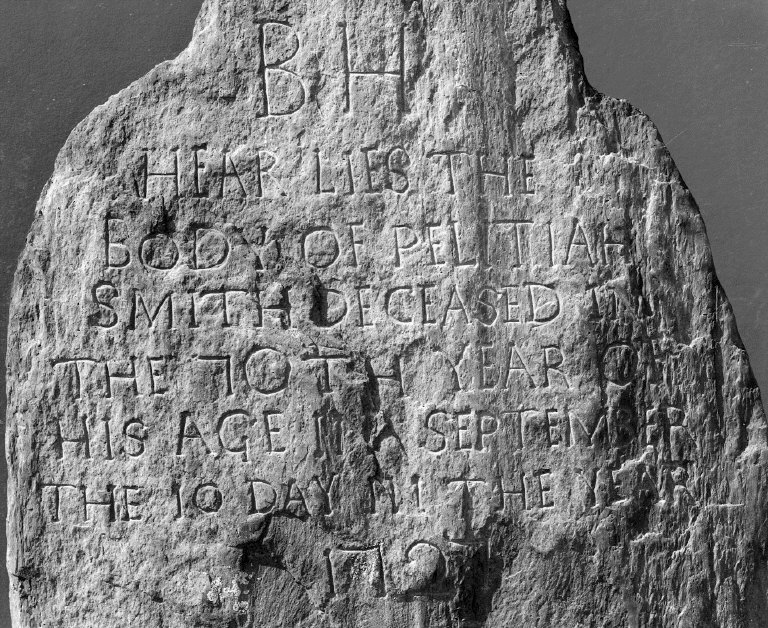 BH
HEAR LIES THE
BODY OF PELITIAH
SMITH DECEASED IN
THE 70TH YEAR OF
HIS AGE IN A SEPTEMBER
THE 10 DAY IN THE YEAR
1727